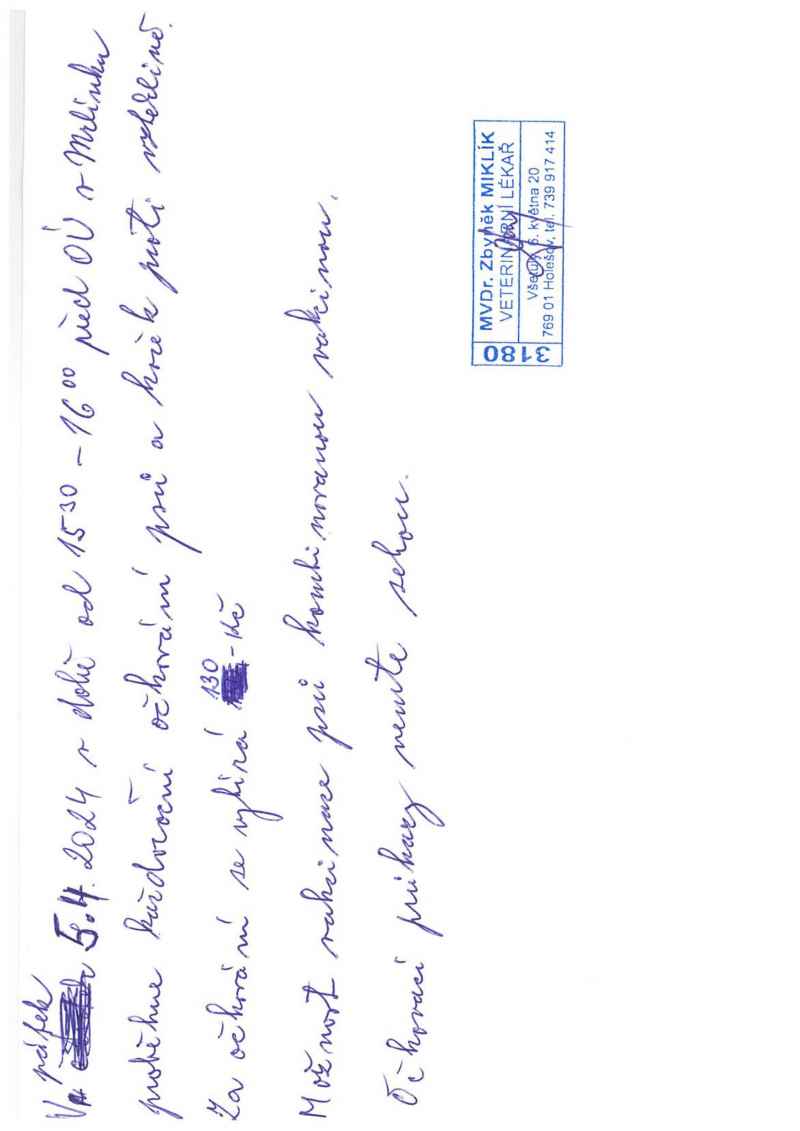 V pátek 5.4. 2024 v době od 15³⁰ – 16⁰⁰ před OÚ v Mrlínku
proběhne každoroční očkování psů a koček proti vzteklině.
Za očkování se vybírá 130 - Kč
Možnost vakcinace psů kombinovanou vakcinou.
Očkovací průkazy vemte sebou.
3180
MVDr. Zbyněk MIKLÍK
VETERINÁRNÍ LÉKAŘ
Všetuly, 6. května 20
769 01 Holešov, tel. 739 917 414